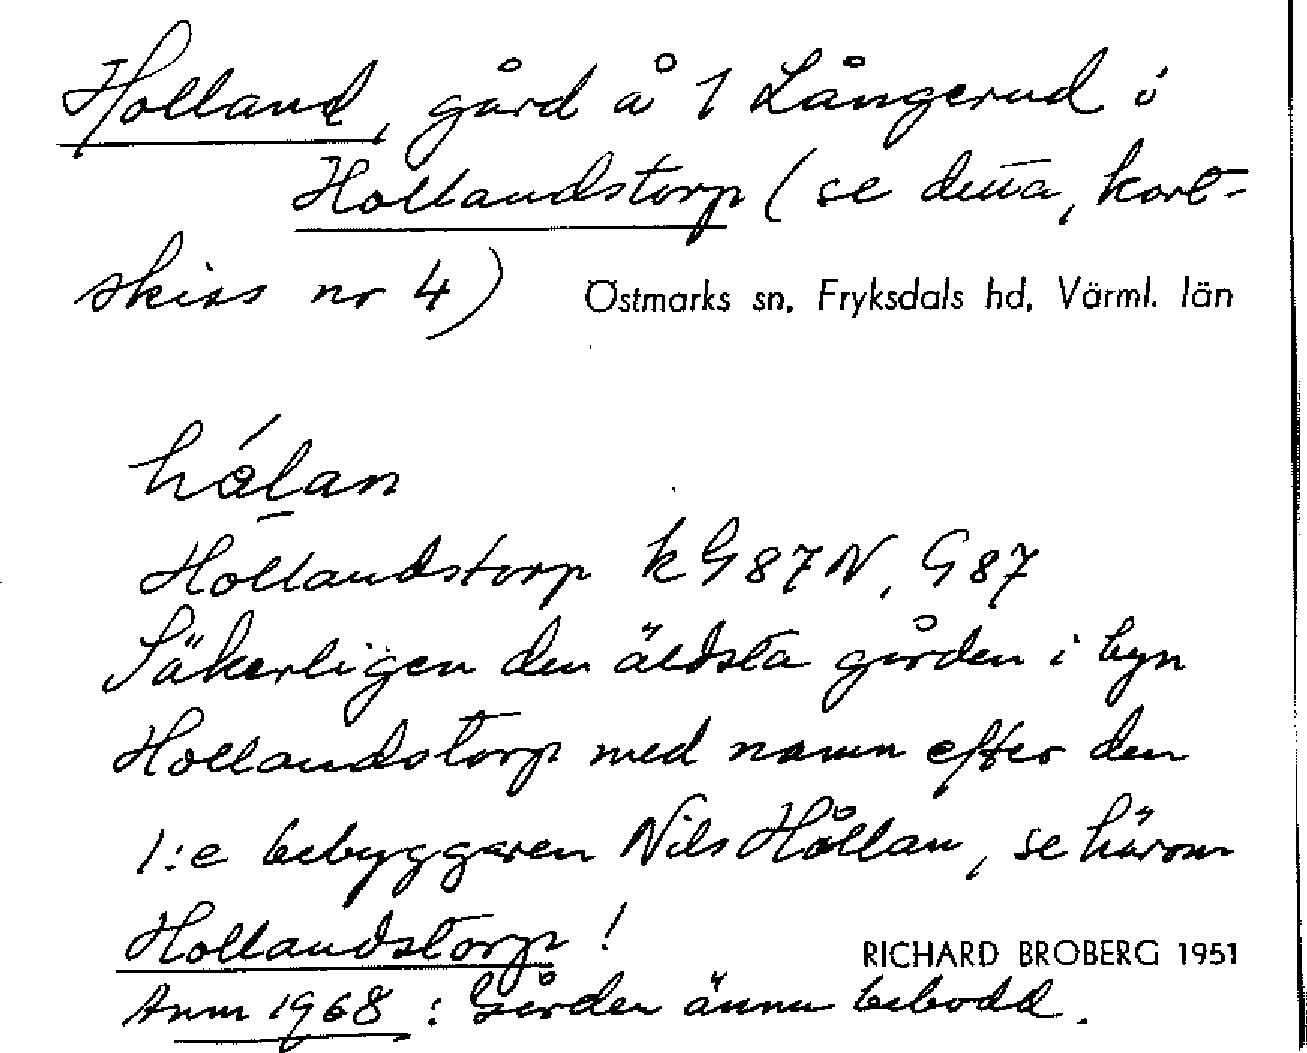 Holland, gård å 1 Långerud i
Hollandstorp (se detta, kart-
skiss nr 4) Östmarks sn, Fryksdals hd, Värml. län
hålan
Hollandstorp k G 87 N, G 87
Säkerligen den äldsta gården i byn
Hollandstorp med namn efter den
1:e bebyggaren Nils Hållan, se härom
Hollandstorp! RICHARD BROBERG 1951
Anm 1968: Gården ännu bebodd.